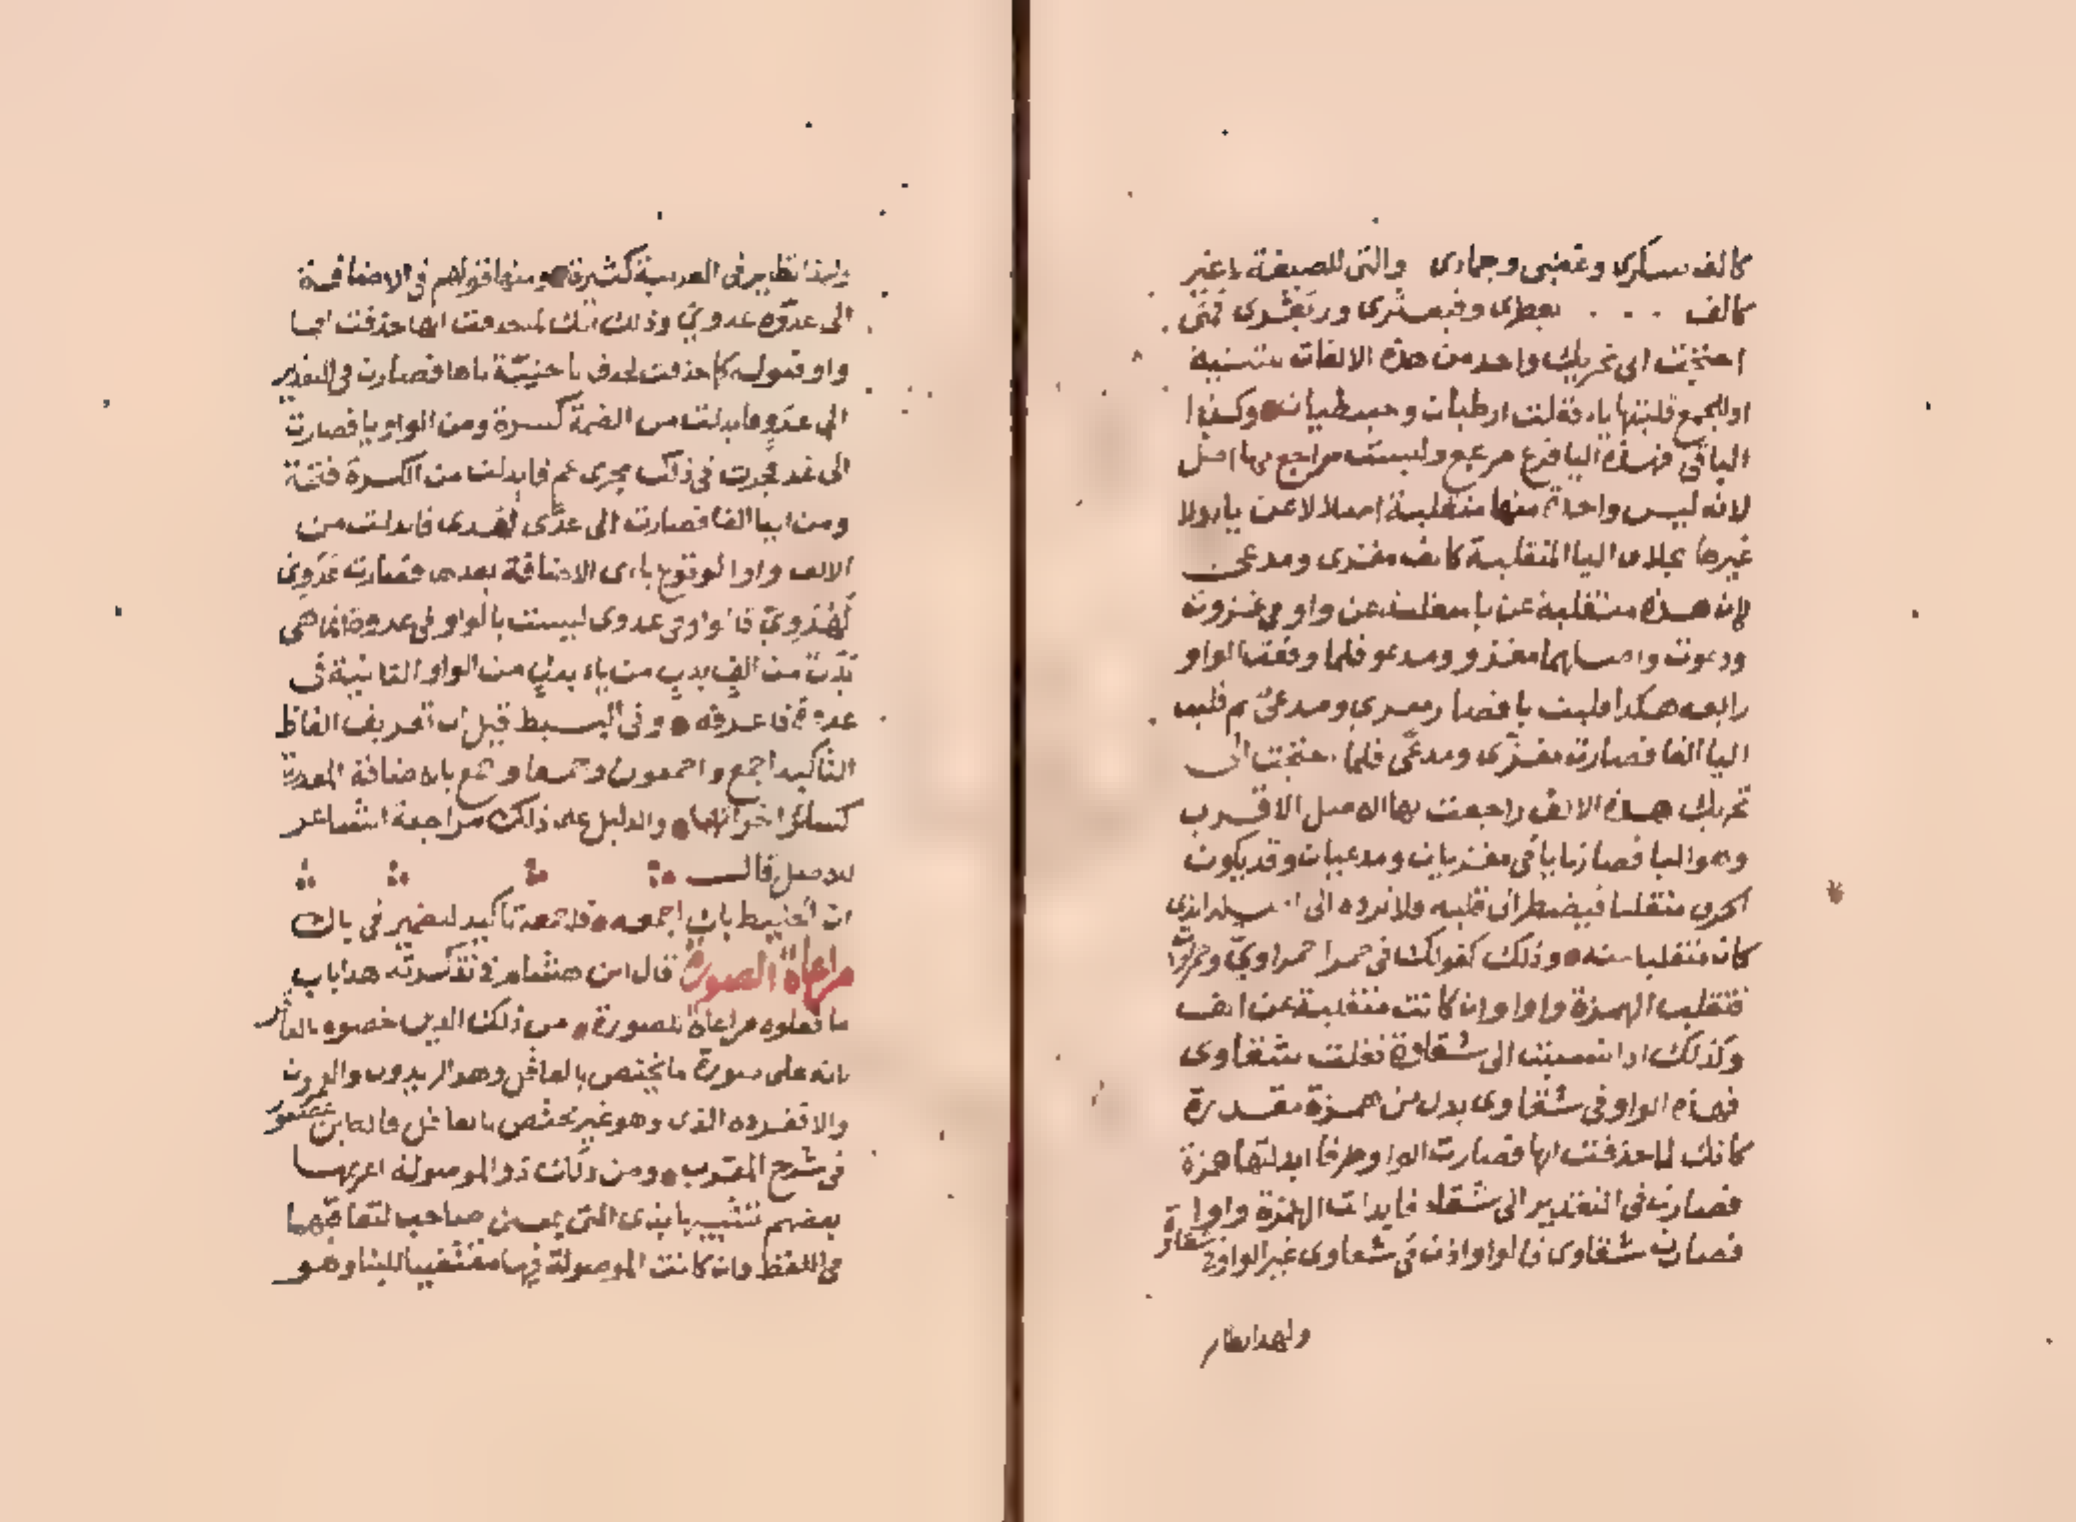 كالف سكرى وغضبى وجمادى والتى للصيغة لا غير
كالف ... بعطرى وقبعثرى وزبعثرى فمتى
احتجت الى تحريك واحد من هذه الالفات بتثنية
او الجمع قلبتها ياء فقلت ارطيات وحبنطيات وكذا
الباقى فهذه اليا فرع مرتجع وليست مراجع بها اصل
لانه ليس واحدة منها منقلبة اصلا لا عن يا ولا
غيرها بخلاف اليا المنقلبة كالف مغزى ومدعى
لان هذه منقلبة عن يا منقلبة عن واو فى غزوت
ودعوت واصلهما مغزو ومدعو فلما وقعت الواو
رابعة هكذا قلبت يا فصار مغزى ومدعى ثم قلبت
اليا الفا فصارت مغزى ومدعى فلما احتجت الى
تحريك هذه الالف راجعت بها الاصل الاقرب
وهو اليا فصارتا يا فى مغزيات ومدعيات وقد يكون
الحرف منقلبا فيضطر الى قلبه فلا ترده الى اصله الذى
كان منقلبا منه وذلك كقولك فى حمرا حمراوى وحمراوات
فتقلب الهمزة واوا وان كانت منقلبة عن الف
وكذلك اذا نسبت الى شقاوة فقلت شقاوى
فهذه الواو فى شقاوى بدل من همزة مقدرة
كانك لما حذفت الها فصارت الواو طرفا ابدلتها همزة
فصارت فى التقدير الى شقاء فابدلت الهمزة واوا
فصارت شقاوى فالواو اذن فى شقاوى غير الواو فى شقاوة
ولهذا نظاير
ولهذا نظاير فى العربية كثيرة ومنها قولهم فى الاضافة
الى عدوة عدوى وذلك انك لما حذفت الها حذفت لها
واو فعولة كما حذفت لحذف يا حنيفة ياها فصارت فى التقدير
الى عدو فابدلت من الضمة كسرة ومن الواو يا فصارت
الى عد فجرت فى ذلك مجرى عم فابدلت من الكسرة فتحة
ومن اليا الفا فصارت الى عدى كهدى فابدلت من
الالف واوا لوقوع ياءى الاضافة بعدها فصارت عدوى
كهدوى فالواو فى عدوى ليست بالواو فى عدوة انما هى
بدل من الف بدل من ياء بدل من الواو الثانية فى
عدوة فاعرفه وفى البسيط قيل ان تعريف الفاظ
التاكيد اجمع واجمعون وجمعا وجمع بالاضافة المقدرة
كسائر اخواتها والدليل على ذلك مراجعة الشاعر
للاصل قال
ان الخليط بان اجمعه فاجمعه تاكيد لضمير فى بان
مراعاة الصورة قال ابن هشام فى تذكرته هذا باب
ما فعلوه مراعاة للصورة من ذلك الذين خصوه بالعاقل
لانه على صورة ما يختص بالعاقل وهو الزيدون والعمرون
والا فمفرده الذى وهو غير مختص بالعاقل قاله ابن عصفور
فى شرح المقرب ومن ذلك ذو الموصولة اعربها
بعضهم تشبيها بذى التى بمعنى صاحب لتعاقبهما
فى اللفظ وان كانت الموصولة فيها مقتضيا للبنا وهو